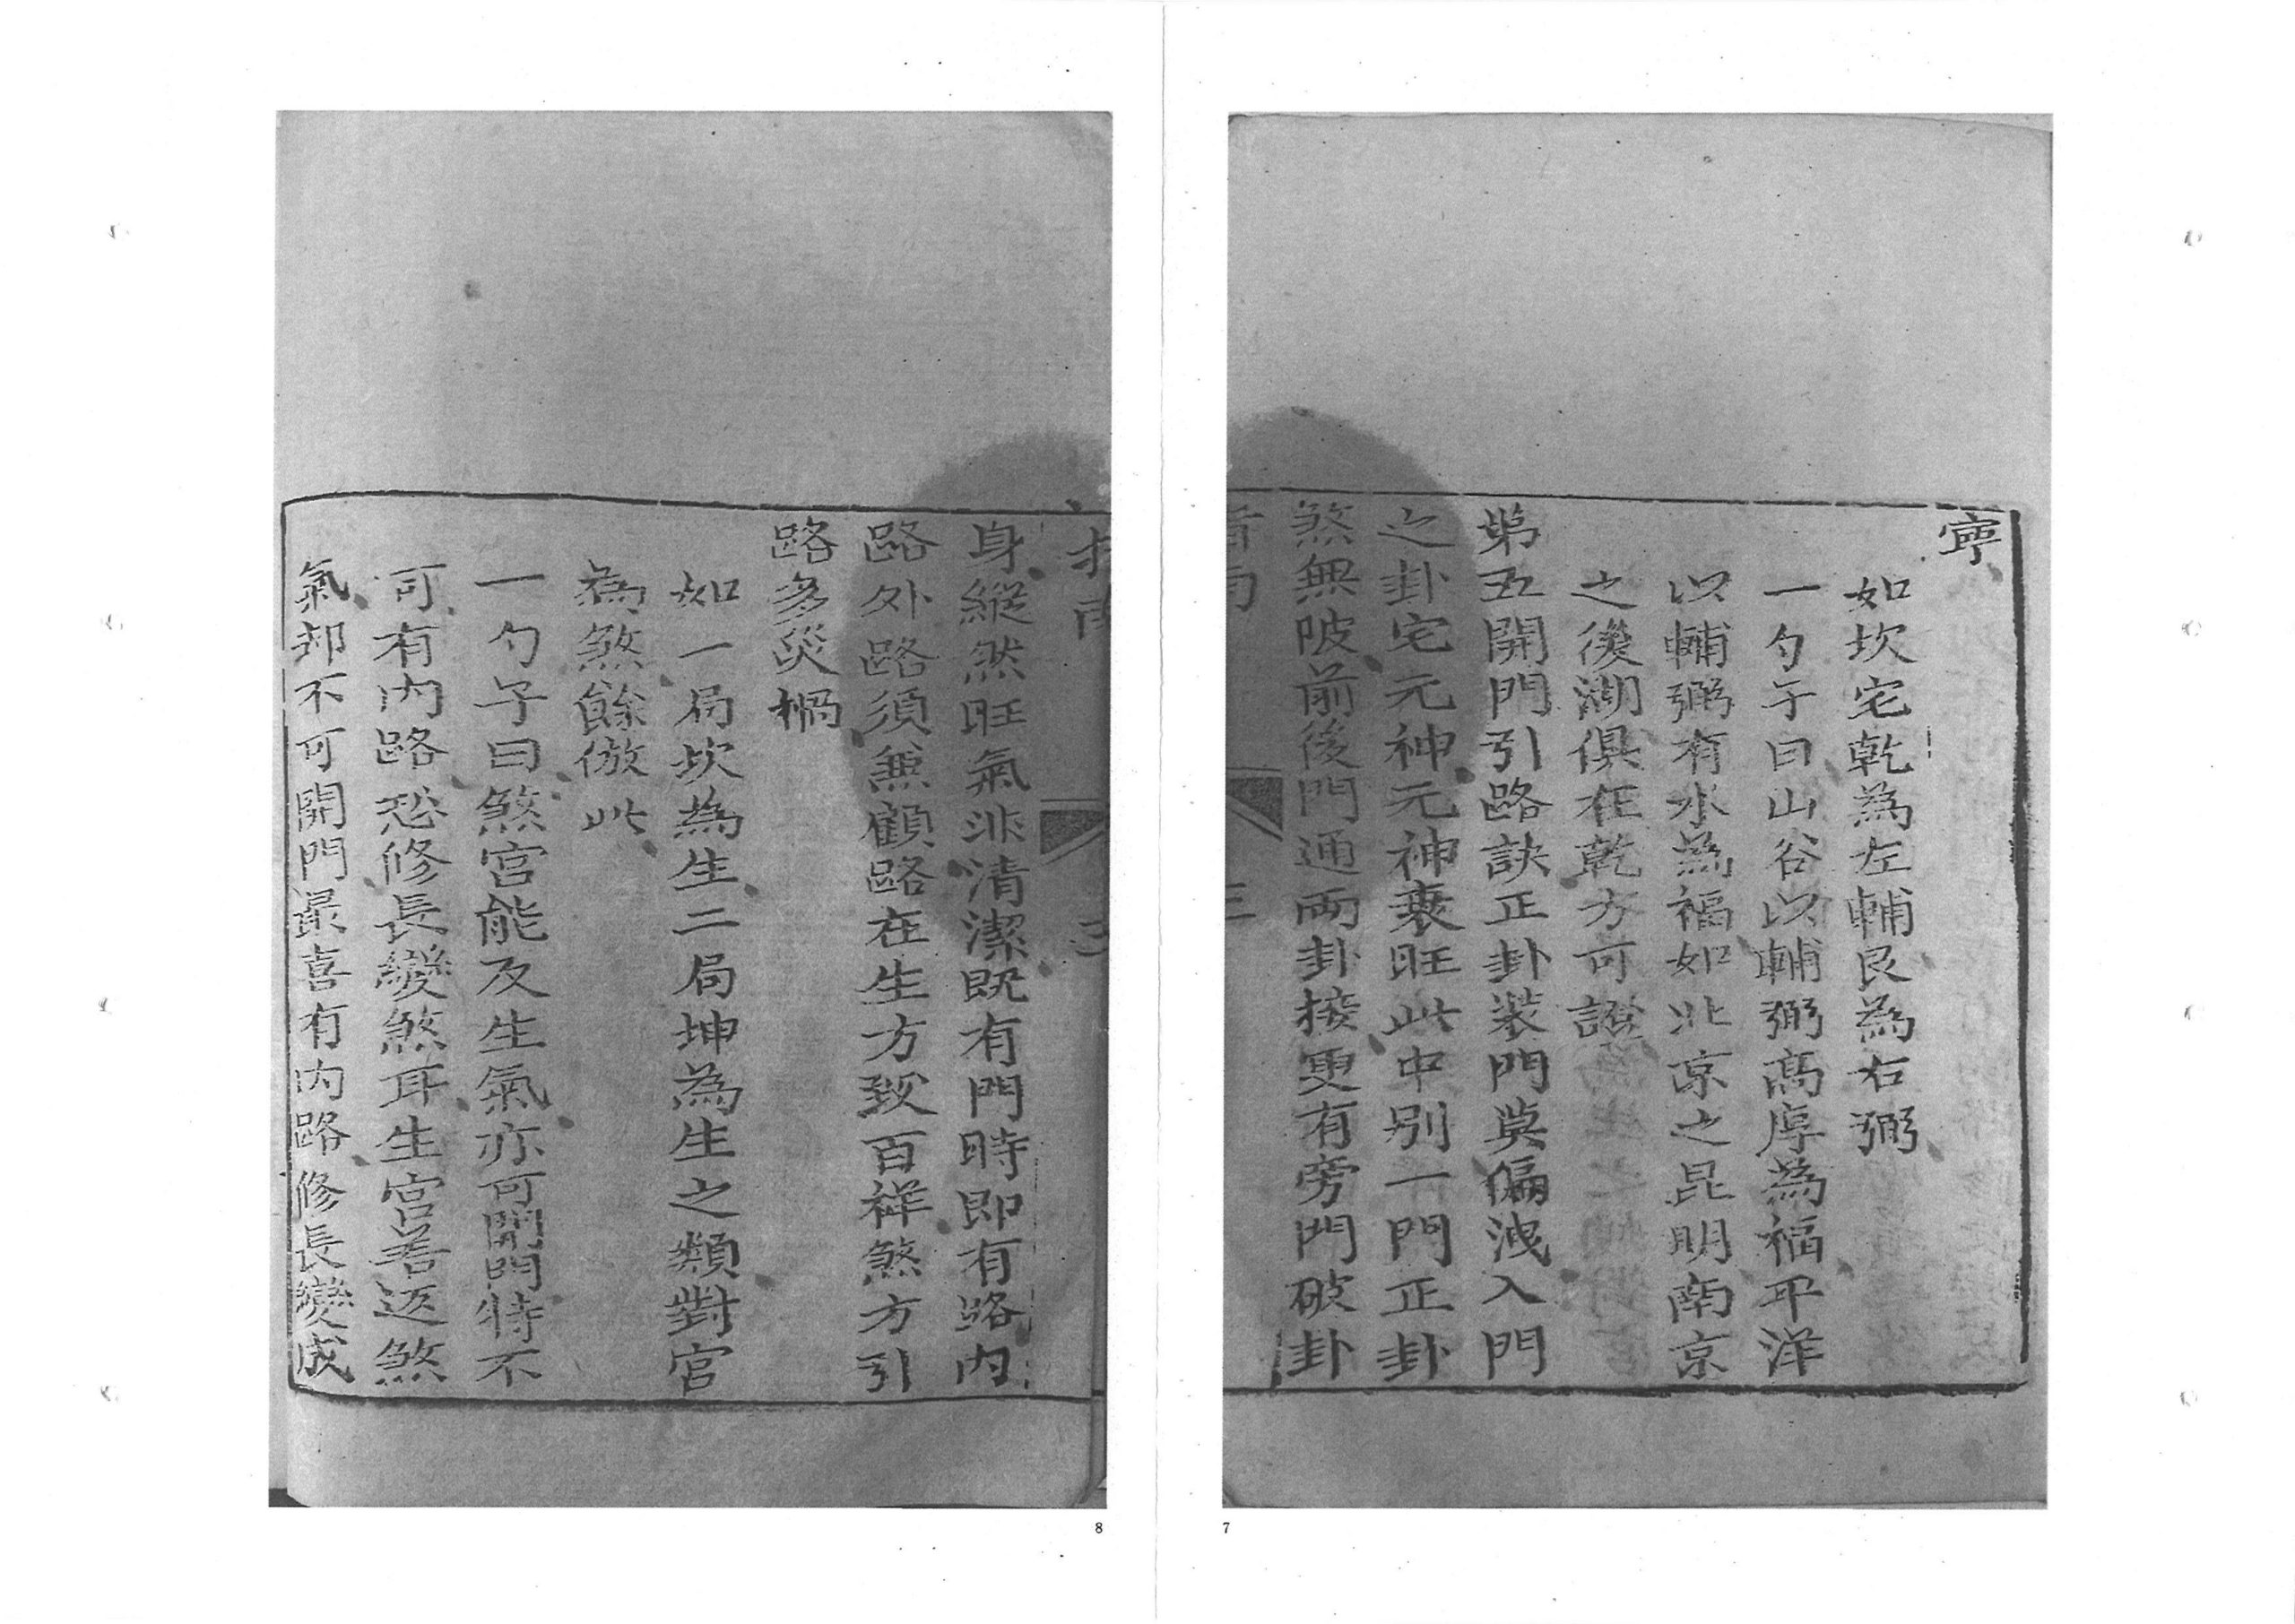 寧
如坎宅乾為左輔艮為右弼
一勺子曰山谷以輔弼高厚為福平洋
以輔弼有水為福如北京之昆明南京
之後湖俱在乾方可證
第五開門引路訣正卦裝門莫偏洩入門
之卦宅元神元神衰旺此中別一門正卦
煞無陂前後門通兩卦接更有旁門破卦
指南
三
7
指南
三
身縱然旺氣非清潔既有門時即有路內
路外路須兼顧路在生方致百祥煞方引
路多災禍
如一局坎為生二局坤為生之類對宮
為煞餘倣此
一勺子曰煞宮能及生氣亦可開門特不
可有內路恐修長變煞耳生宮若返煞
氣却不可開門最喜有內路修長變成
8